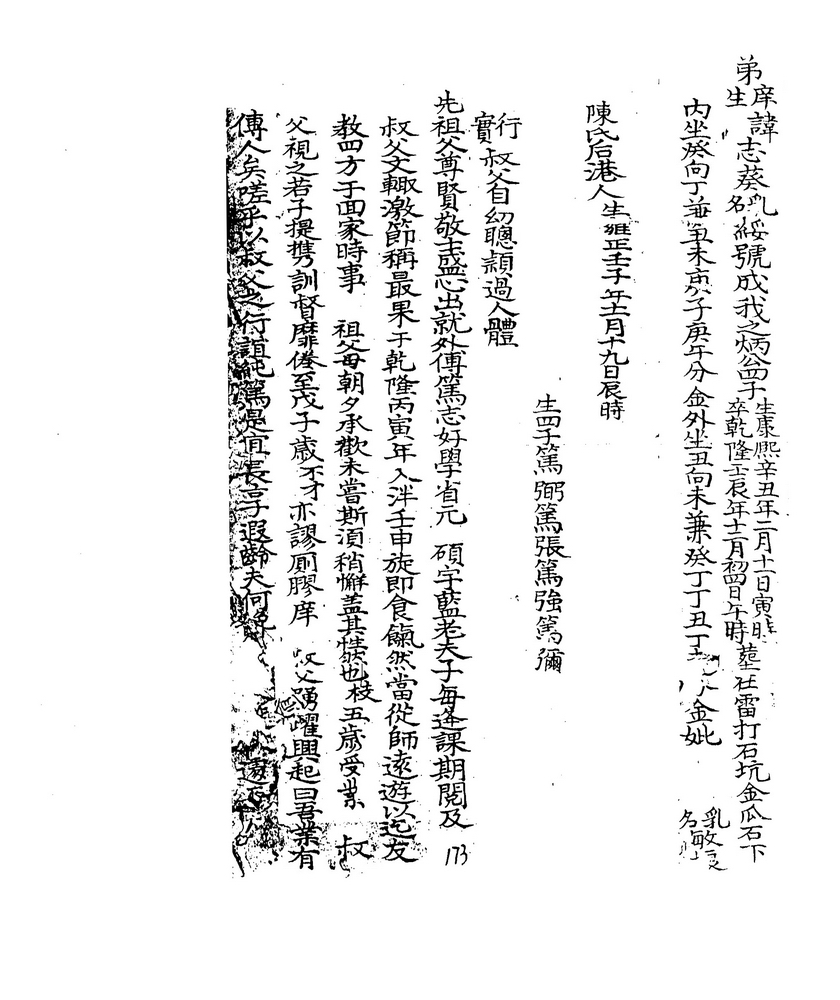 弟庠生諱志葵乳名綏號成我之炳公三子生康熙辛丑年二月十一日寅時卒乾隆壬辰年十二月初四日午時葬在雷打石坑金瓜石下
內坐癸向丁並丑未庚子庚午分金外坐丑向未兼癸丁丁丑丁 金妣乳名敏
陳氏后港人生雍正壬子年十一月十九日辰時
生四子篤弼篤張篤強篤彌
行實叔父自幼聰頴過人體
先祖父尊賢敬士盛心出就外傅篤志好學省元 碩宇藍老夫子每逢課期閱及
叔父文輒激節稱最果于乾隆丙寅年入泮壬申旋即食餼然當從師遠遊以迄友
教四方于回家時事 祖父母朝夕承歡未嘗斯須稍懈蓋其性然也枝五歲受業 叔
父視之若子提攜訓督靡倦至戊子歲不才亦謬厠膠庠 叔父踴躍興起曰吾業有
傳人矣嗟乎以叔父之行誼純篤是宜長享遐齡夫何
173